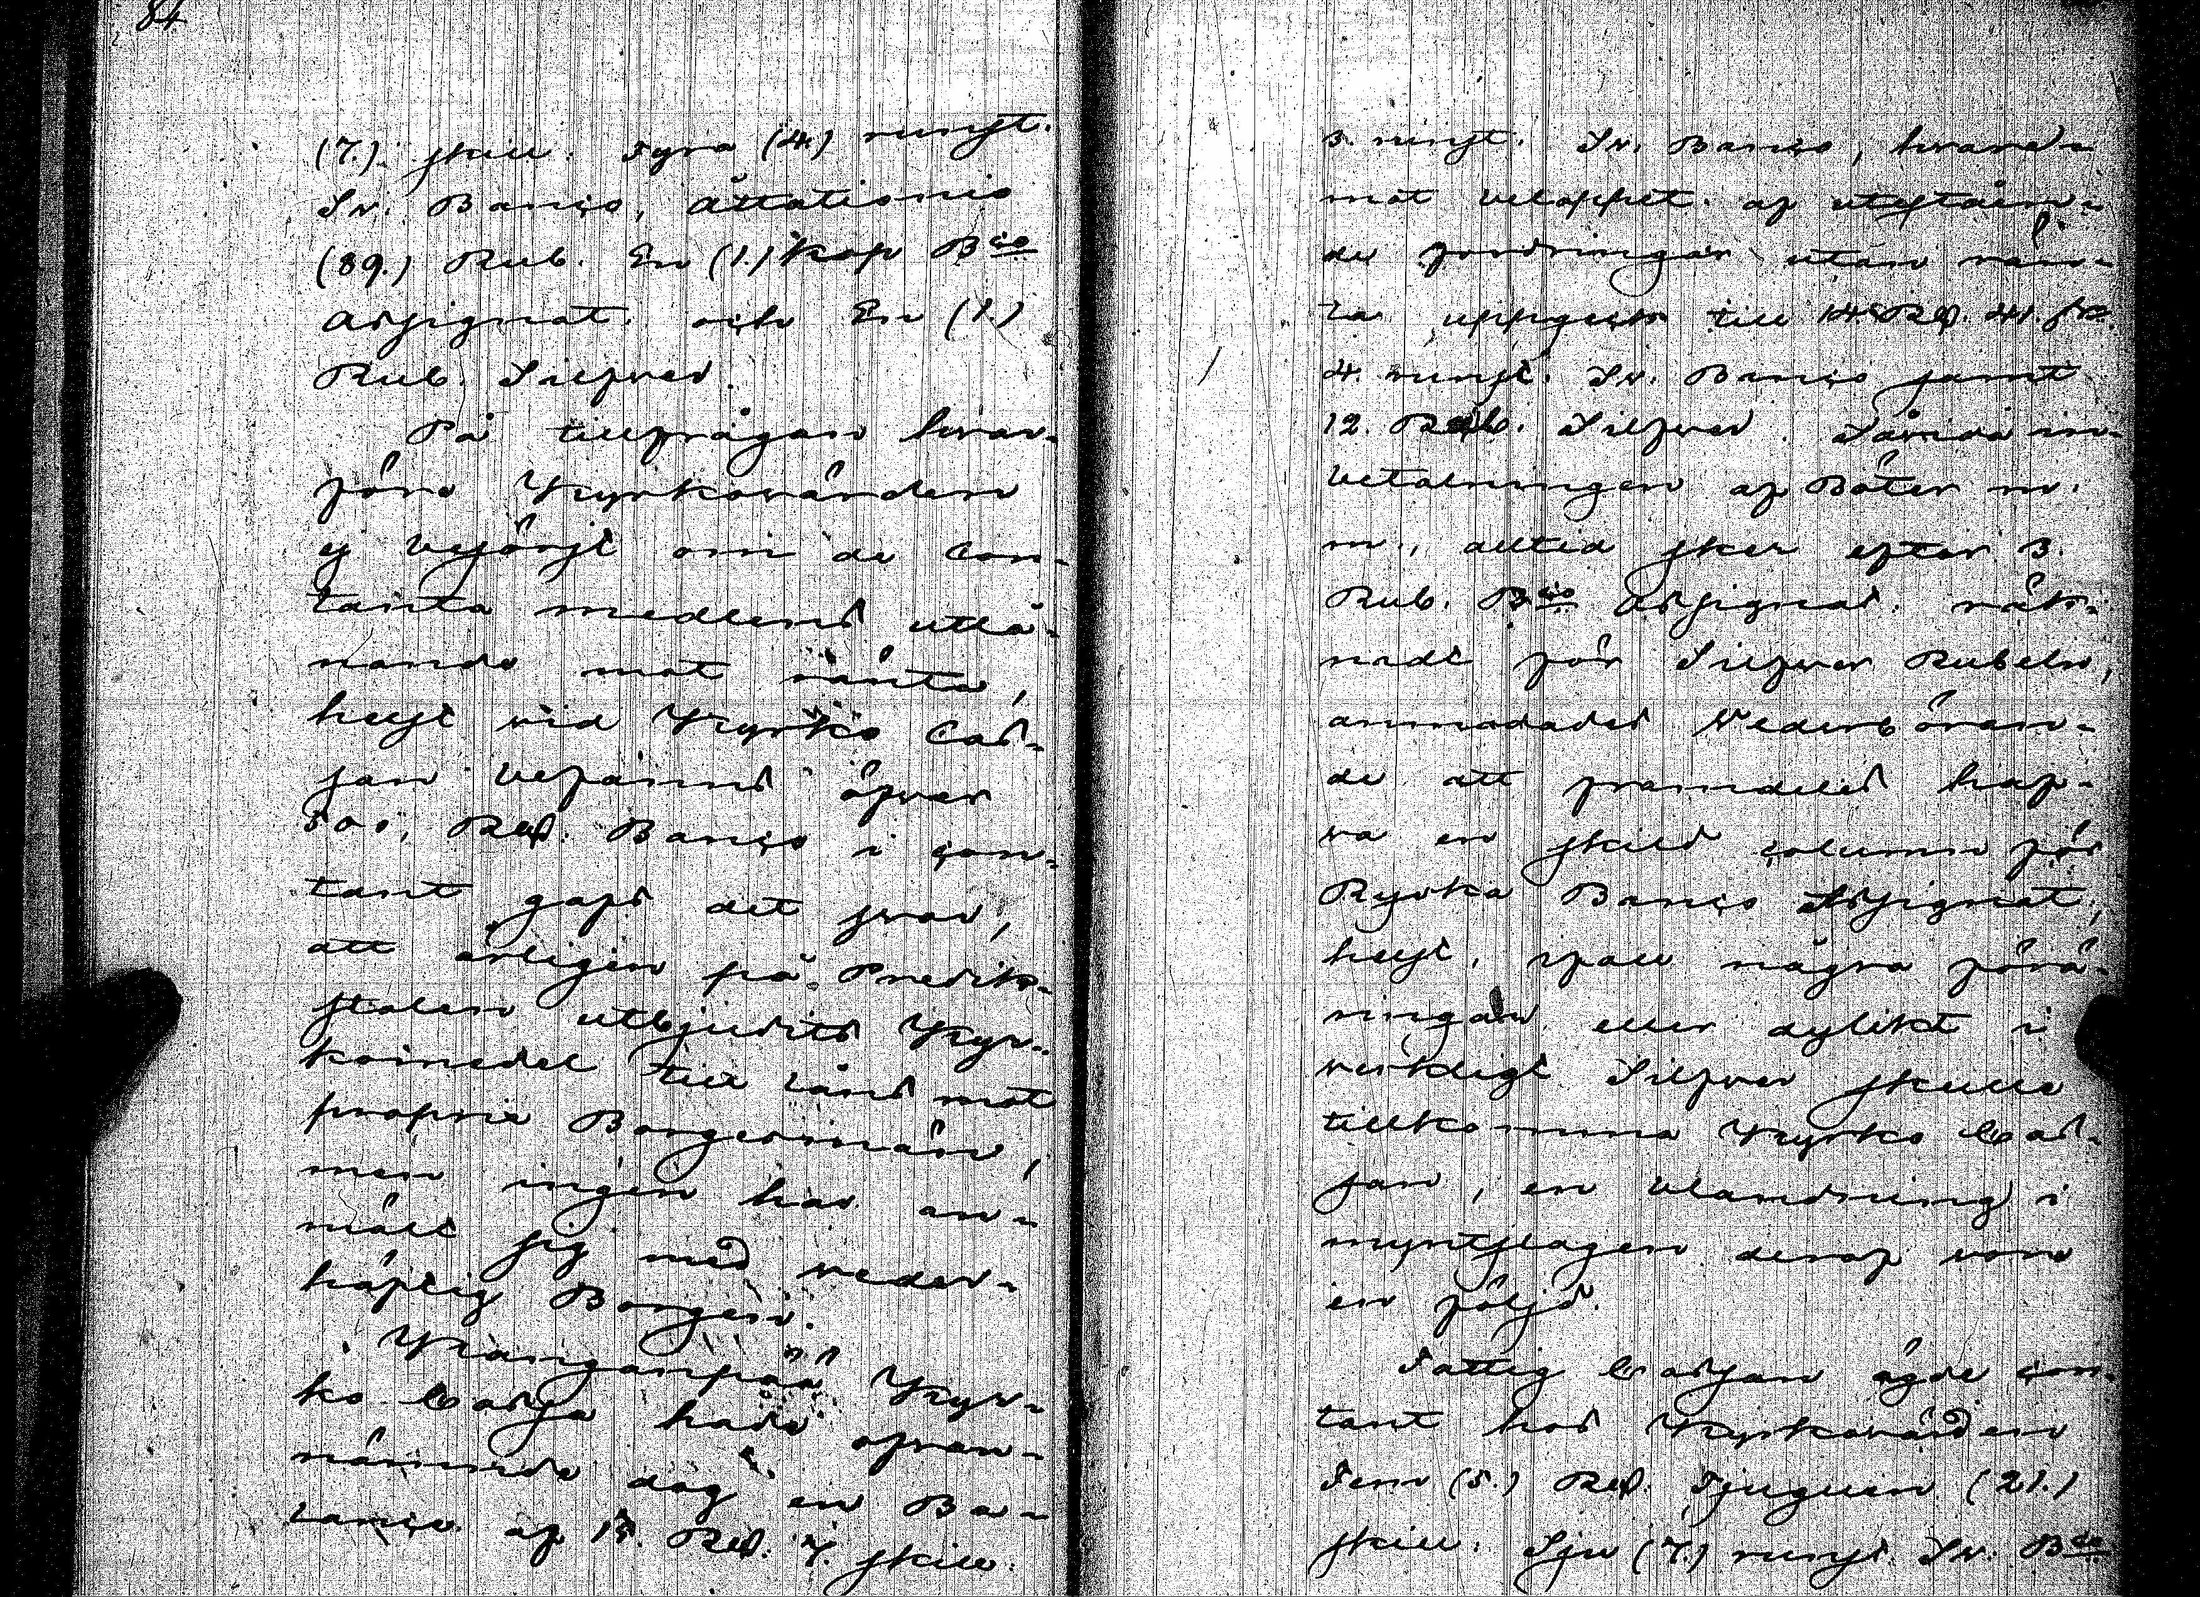 84
(7.) skill. Fyra (4.) runst.
Sv. Banco, Åttationio
(89.) Rub. En (1.) kop Bco
Assignat. och En (1.)
Rub. Silfver.
På tillfrågan hvar-
före Kyrkovärden
ej besörjt om de con-
tanta medlens utlå-
nande mot ränta,
helst vid Kyrko Cas-
san befanns öfver
500. Rd. Banco i con-
tant gafs det svar,
att årligen på Predik-
stolen utbjudits Kyr-
komedel till låns mot
proprie Borgesmän,
men ingen har an-
mält sig med veder-
häftig Borgen.
Kianganpää Kyr-
ko Cassa hade ofvan-
nämnde dag en Ba-
lance af 15. Rd. 7. skill.
3. runst. Sv. Banco, hvare-
mot beloppet af uteståen-
de fordringar utan rän-
ta uppgick till 148 Rd. 41 sk.
4. runst. Sv. Banco samt
12. Rub. Silfver. Såvida in-
betalningen af Böter m.
m., alltid sker efter 3.
Rub. Bco Assignat. räk-
nadt för Silfver Rubeln,
anmodades Vederböran-
de att framdeles haf-
va en skild column för
Ryska Banco Assignat,
helst, ifall några förä-
ringar eller dylikt i
verkligt Silfver skulle
tillkomma Kyrko Cas-
san, en blandning i
myntslagen deraf vore
en följd.
Fattig Cassan ägde con-
tant hos Kyrkovärden
Fem (5.) Rd. Tjuguen (21.)
skill. Sju (7.) runst. Sv. Bco